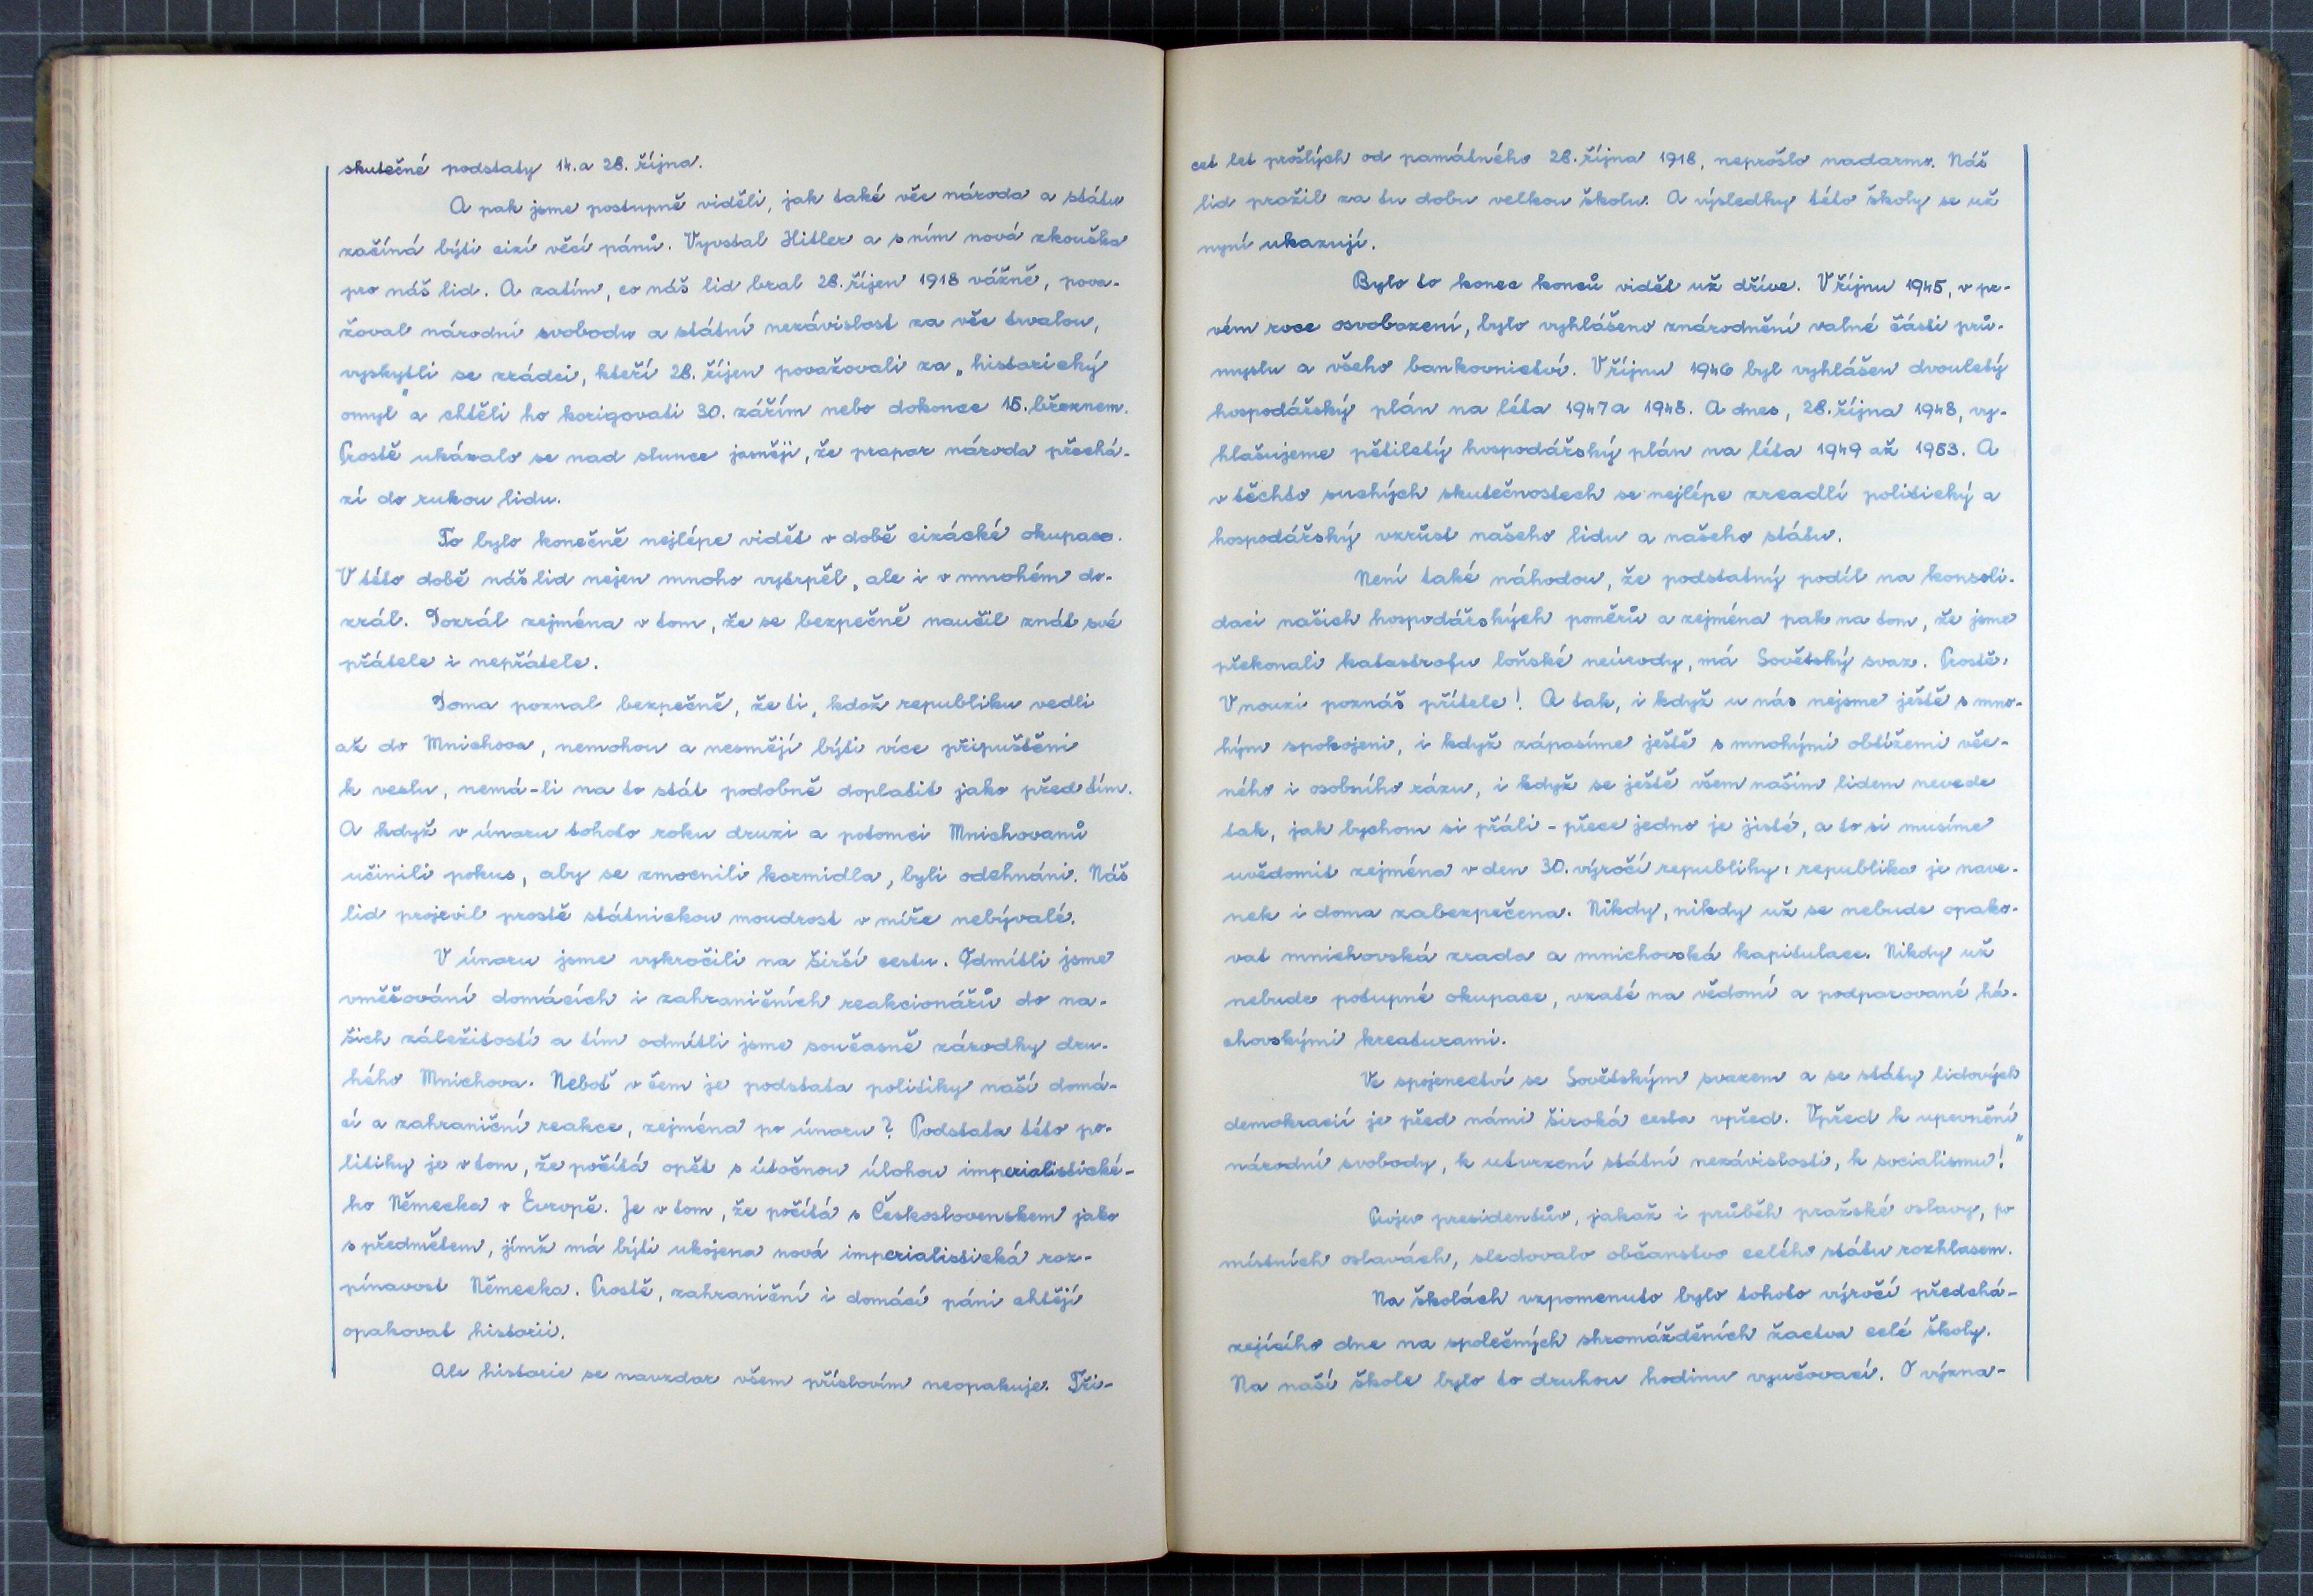 skutečné podstaty 14. a 28. října.
A pak jsme postupně viděli, jak také věc národa a státu
začíná býti cizí věcí pánů. Vyvstal Hitler a s ním nová zkouška
pro náš lid. A zatím, co náš lid bral 28. říjen 1918 vážně, pova-
žoval národní svobodu a státní nezávislost za věc trvalou,
vyskytli se zrádci, kteří 28. říjen považovali za „historický
omyl" a chtěli ho korigovati 30. zářím nebo dokonce 15. březnem.
Prostě ukázalo se nad slunce jasněji, že prapor národa přechá-
zí do rukou lidu.
To bylo konečně nejlépe vidět v době cizácké okupace.
V této době náš lid nejen mnoho vytrpěl, ale i v mnohém do-
zrál. Dozrál zejména v tom, že se bezpečně naučil znát své
přátele i nepřátele.
Doma poznal bezpečně, že ti, kdož republiku vedli
až do Mnichova, nemohou a nesmějí býti více připuštěni
k veslu, nemá-li na to stát podobně doplatit jako před tím.
A když v únoru tohoto roku druzi a potomci Mnichovanů
učinili pokus, aby se zmocnili kormidla, byli odehnáni. Náš
lid projevil prostě státnickou moudrost v míře nebývalé.
V únoru jsme vykročili na širší cestu. Odmítli jsme
vměšování domácích i zahraničních reakcionářů do na-
šich záležitostí a tím odmítli jsme současně zárodky dru-
hého Mnichova. Neboť v čem je podstata politiky naší domá-
cí a zahraniční reakce, zejména po únoru? Podstata této po-
litiky je v tom, že počítá opět s útočnou úlohou imperialistické-
ho Německa v Evropě. Je v tom, že počítá s Československem jako
s předmětem, jímž má býti ukojena nová imperialistická roz-
pínavost Německa. Prostě, zahraniční i domácí páni chtějí
opakovat historii.
Ale historie se navzdor všem příslovím neopakuje. Tři-
cet let prošlých od památného 28. října 1918, neprošlo nadarmo. Náš
lid prožil za tu dobu velkou školu. A výsledky této školy se už
nyní ukazují.
Bylo to konec konců vidět už dříve. V říjnu 1945, v pr-
vém roce osvobození, bylo vyhlášeno znárodnění valné části prů-
myslu a všeho bankovnictví. V říjnu 1946 byl vyhlášen dvouletý
hospodářský plán na léta 1947 a 1948. A dnes, 28. října 1948, vy-
hlašujeme pětiletý hospodářský plán na léta 1949 až 1953. A
v těchto suchých skutečnostech se nejlépe zreadlí politický a
hospodářský vzrůst našeho lidu a našeho státu.
Není také náhodou, že podstatný podíl na konsoli-
daci našich hospodářských poměrů a zejména pak na tom, že jsme
překonali katastrofu loňské neúrody, má Sovětský svaz. Prostě:
V nouzi poznáš přítele! A tak, i když u nás nejsme ještě s mno-
hým spokojeni, i když zápasíme ještě s mnohými obtížemi věc-
ného i osobního rázu, i když se ještě všem našim lidem nevede
tak, jak bychom si přáli - přece jedno je jisté, a to si musíme
uvědomit zejména v den 30. výročí republiky: republika je nave-
nek i doma zabezpečena. Nikdy, nikdy už se nebude opako-
vat mnichovská zrada a mnichovská kapitulace. Nikdy už
nebude potupné okupace, vzaté na vědomí a podporované há-
chovskými kreaturami.
Ve spojenectví se Sovětským svazem a se státy lidových
demokracií je před námi široká cesta vpřed. Vpřed k upevnění
národní svobody, k utvrzení státní nezávislosti, k socialismu!"
Projev presidentův, jakož i průběh pražské oslavy, po
místních oslavách, sledovalo občanstvo celého státu rozhlasem.
Na školách vzpomenuto bylo tohoto výročí předchá-
zejícího dne na společných shromážděních žactva celé školy.
Na naší škole bylo to druhou hodinu vyučovací. O význa-